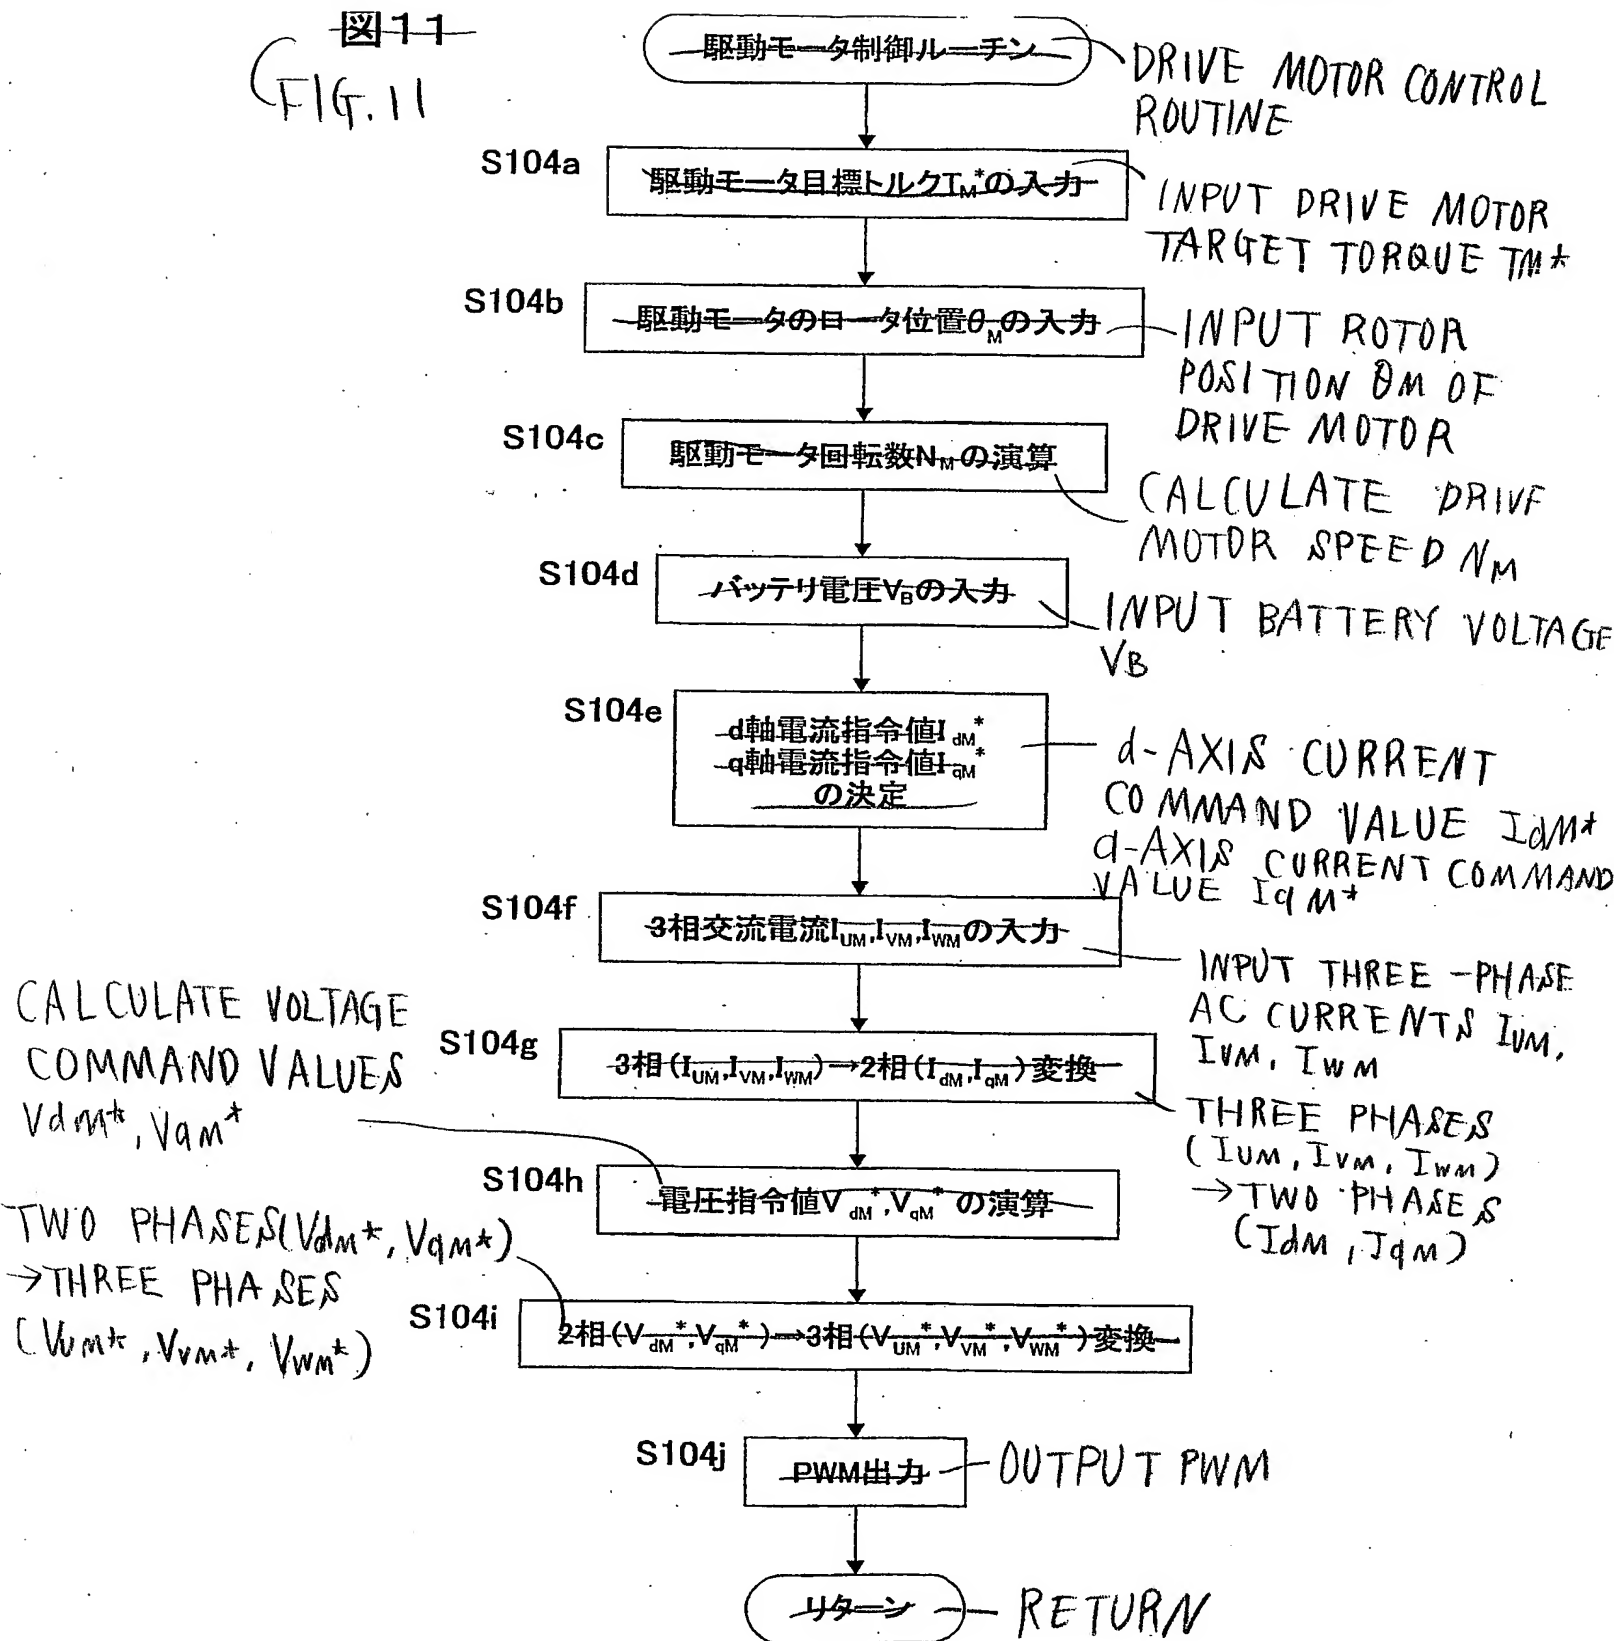 図11
FIG. 11
駆動モータ制御ルーチン
DRIVE MOTOR CONTROL
ROUTINE
S104a
駆動モータ目標トルクTM*の入力
INPUT DRIVE MOTOR
TARGET TORQUE TM*
S104b
駆動モータのロータ位置θMの入力
INPUT ROTOR
POSITION θM OF
DRIVE MOTOR
S104c
駆動モータ回転数NMの演算
CALCULATE DRIVE
MOTOR SPEED NM
S104d
バッテリ電圧VBの入力
INPUT BATTERY VOLTAGE
VB
S104e
d軸電流指令値IdM*
q軸電流指令値IqM*
の決定
d-AXIS CURRENT
COMMAND VALUE IdM*
q-AXIS CURRENT COMMAND
VALUE IqM*
S104f
3相交流電流IUM,IVM,IWMの入力
INPUT THREE-PHASE
AC CURRENTS IUM,
IVM, IWM
S104g
3相(IUM,IVM,IWM)→2相(IdM,IqM)変換
THREE PHASES
(IUM, IVM, IWM)
→TWO PHASES
(IdM, IqM)
CALCULATE VOLTAGE
COMMAND VALUES
VdM*, VqM*
S104h
電圧指令値VdM*,VqM*の演算
TWO PHASES(VdM*, VqM*)
→THREE PHASES
(VUM*, VVM*, VWM*)
S104i
2相(VdM*,VqM*)→3相(VUM*,VVM*,VWM*)変換
S104j
PWM出力
OUTPUT PWM
リターン
RETURN